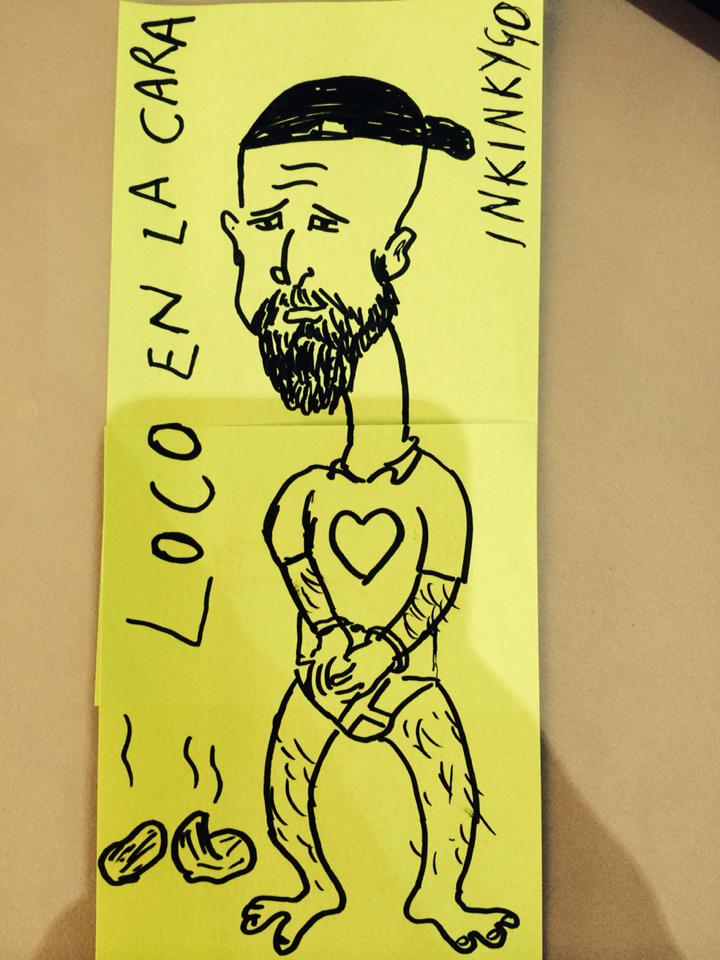 LOCO EN LA CARA
INKINKYGO